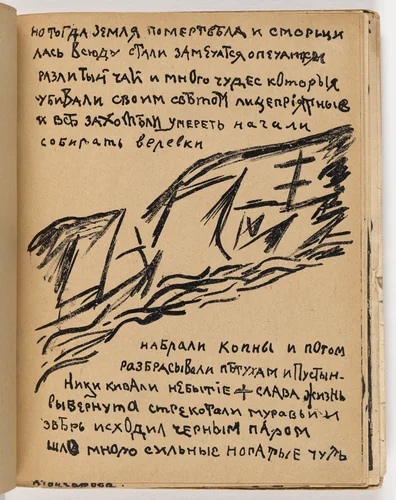 но тогда земля помертвѣла и сморщи
лась всюду стали замечатся опечатки
разлитый чай и много чудес которыя
убивали своим свѣтом лицепрiятные
и всѣ захотѣли умереть начали
собирать веревки
набрали копны и потом
разбрасывали пѣтухам и пустын-
ники кивали небытiе + слава жизнь
вывернута стрекотали муравьи и
звѣрь исходил черным паром
шло много сильные ногатые чуть
Н. Гончарова